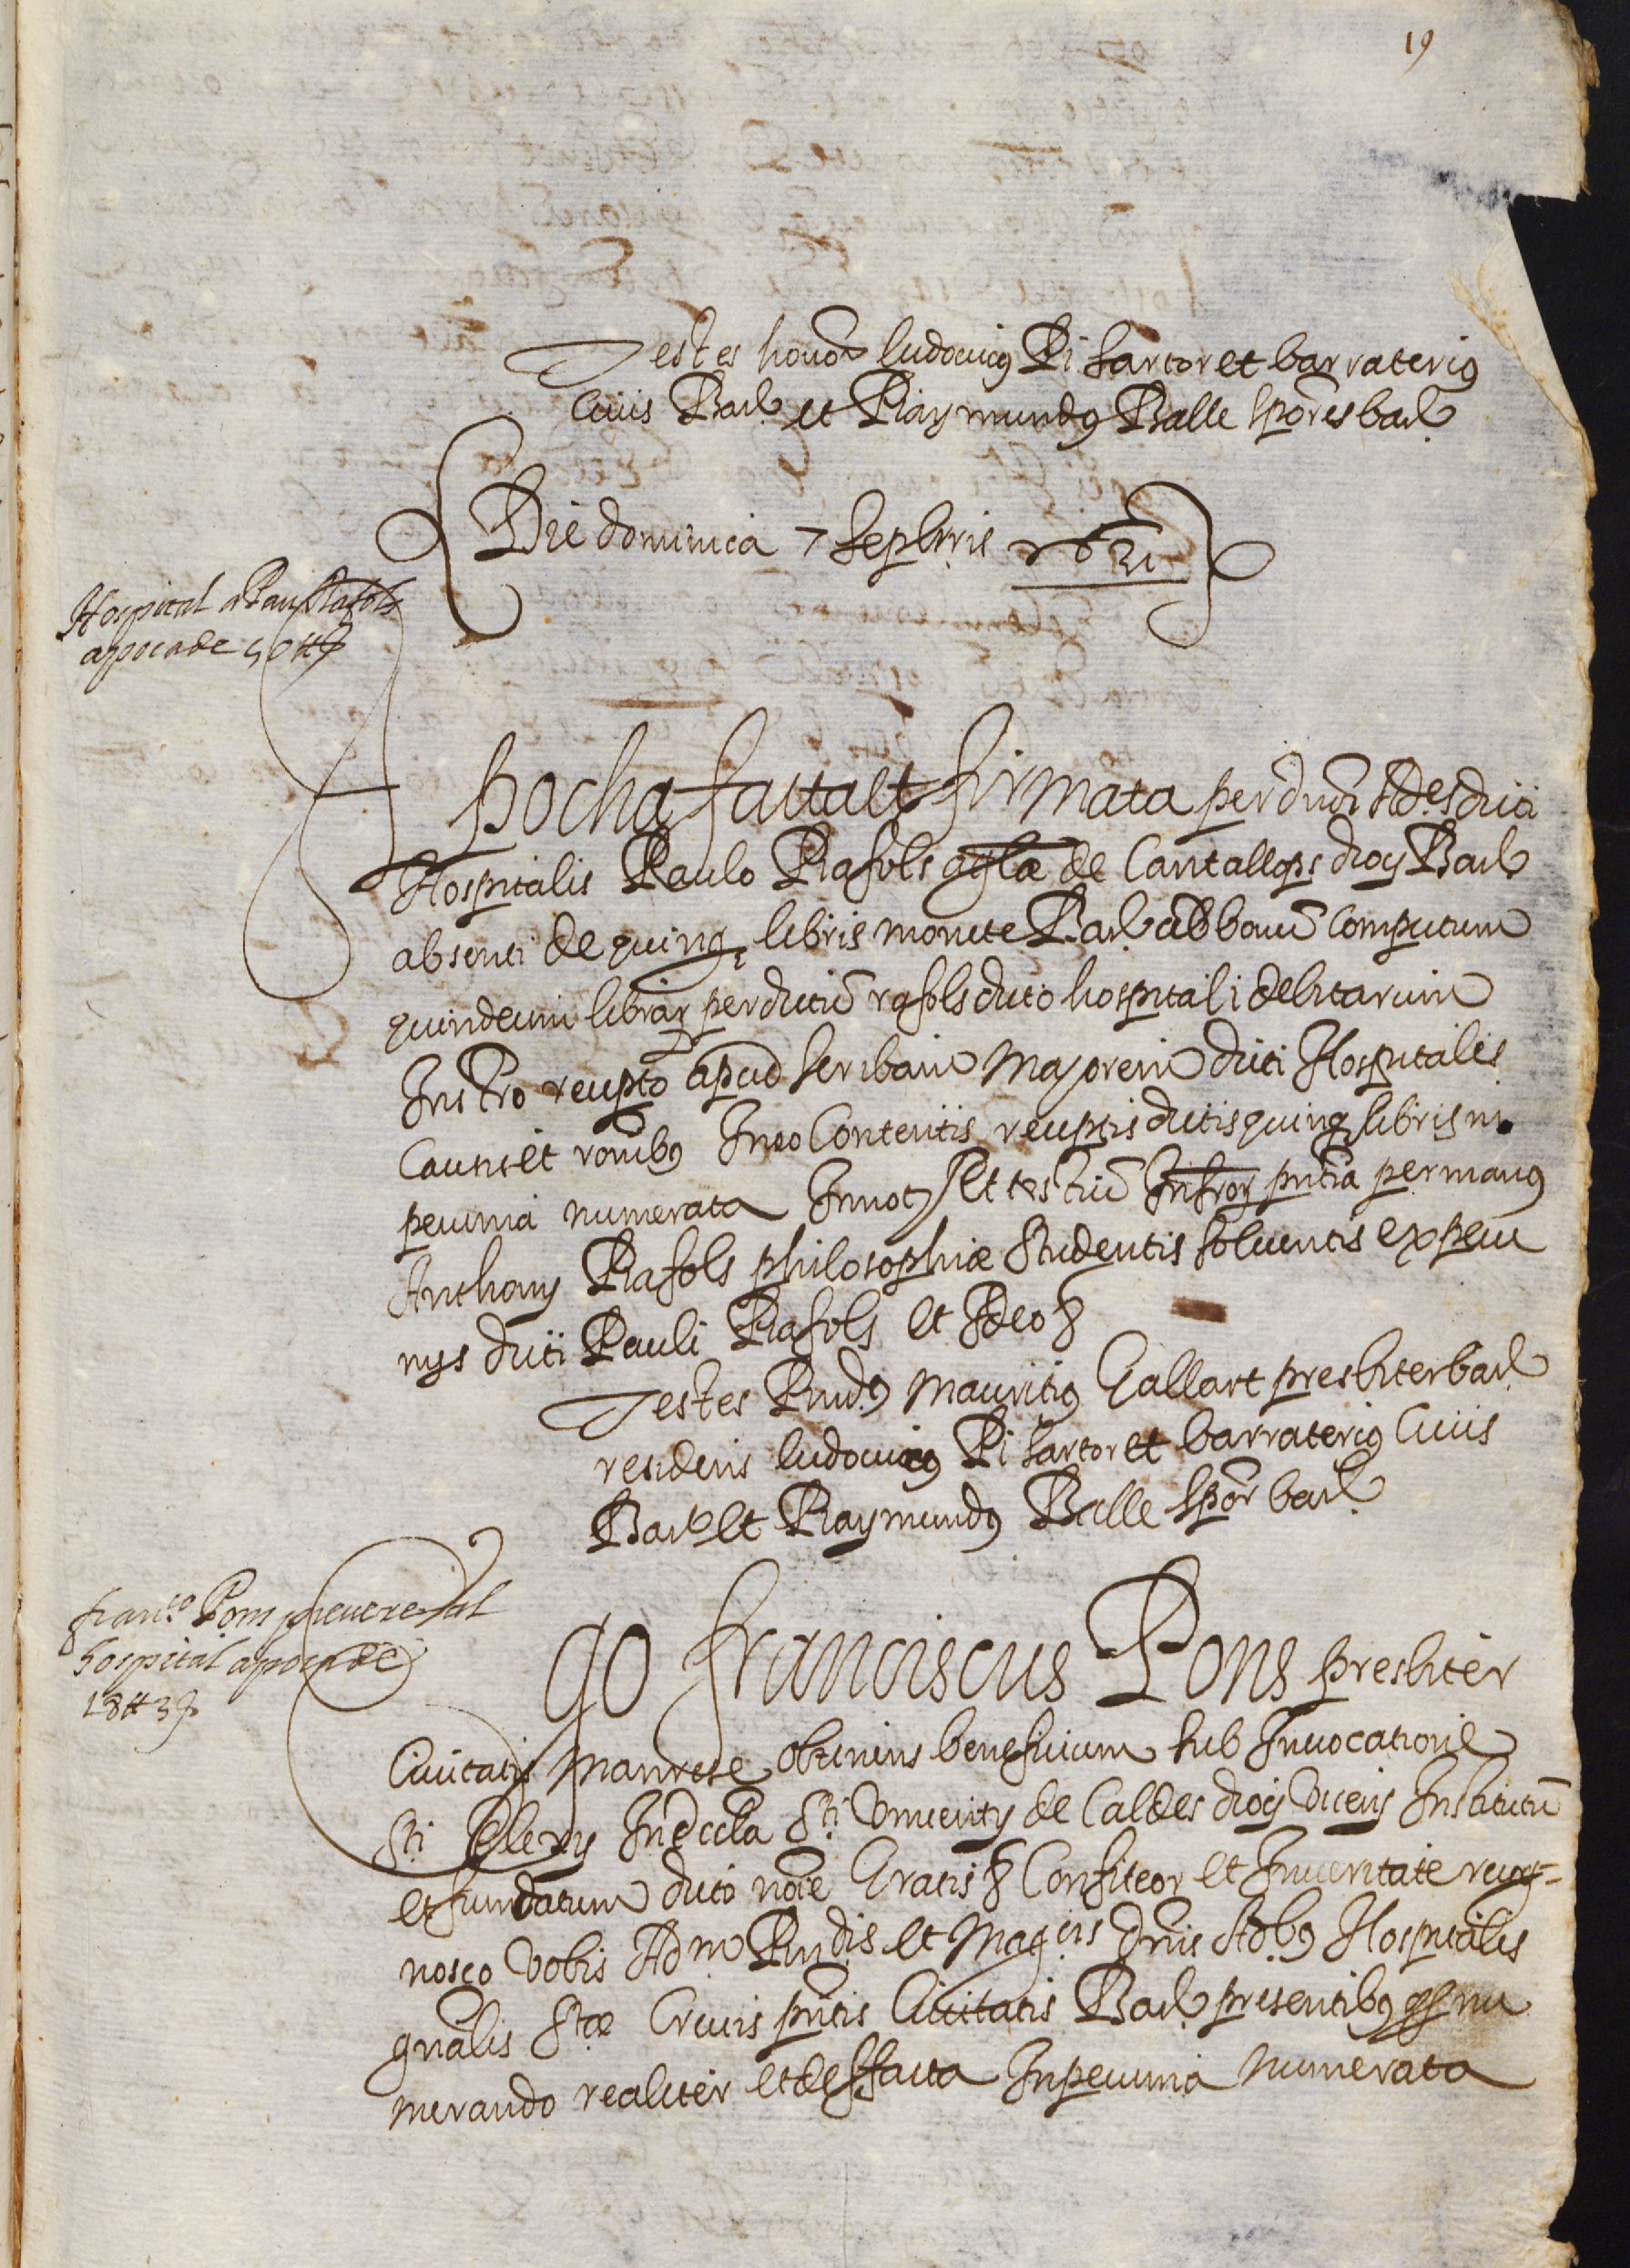 19
Testes honor. ludovicus Pi sartor et barraterius
civis Barl. et Raymundus Balle sptores barl.
Die dominica 7 Septbris 1631
Hospital a Pau Rafols
apoca de 5 ll
Apocha facta et firmata per dnos Ades dicti
Hospitalis Paulo Rafols agla de Cantallops diocis Barl.
absenti de quinq. libris monete Barl. ad bonu computum
quindecim librar. per dictu rafols dicto hospitali debitarum
Instro recepto apud scribam Majorem dicti Hospitalis
Causis et ronibus In eo Contentis receptis dictis quinq. libris in
pecunia numerata In not. et testiu Infror. pntia per manus
Anthonij Rafols philosophiæ studentis solventis ex pecu
nijs dicti Pauli Rafols et Ideo &
Testes Rndus Mauritius Gallart presbiter barl.
residens ludovicus Pi sartor et barraterius Civis
Barl. et Raymundus Balle sptor barl.
franco. Pons prevere al
hospital apoca de
18 ll 3 s
Ego Franciscus Pons presbiter
Civitatis Manrese obtinens beneficium sub Invocatione
Sti. In eccla Sti. Vincentij de Caldes diocis Vicens Institutu
et fundatum dicto noie Gratis & Confiteor et In veritate recog-
nosco vobis Adm. Rndis et Magcis Dnis Adbus Hospitalis
gnalis Stæ Crucis pntis Civitatis Barl. presentibus nu
merando realiter et de facto In pecunia numerata